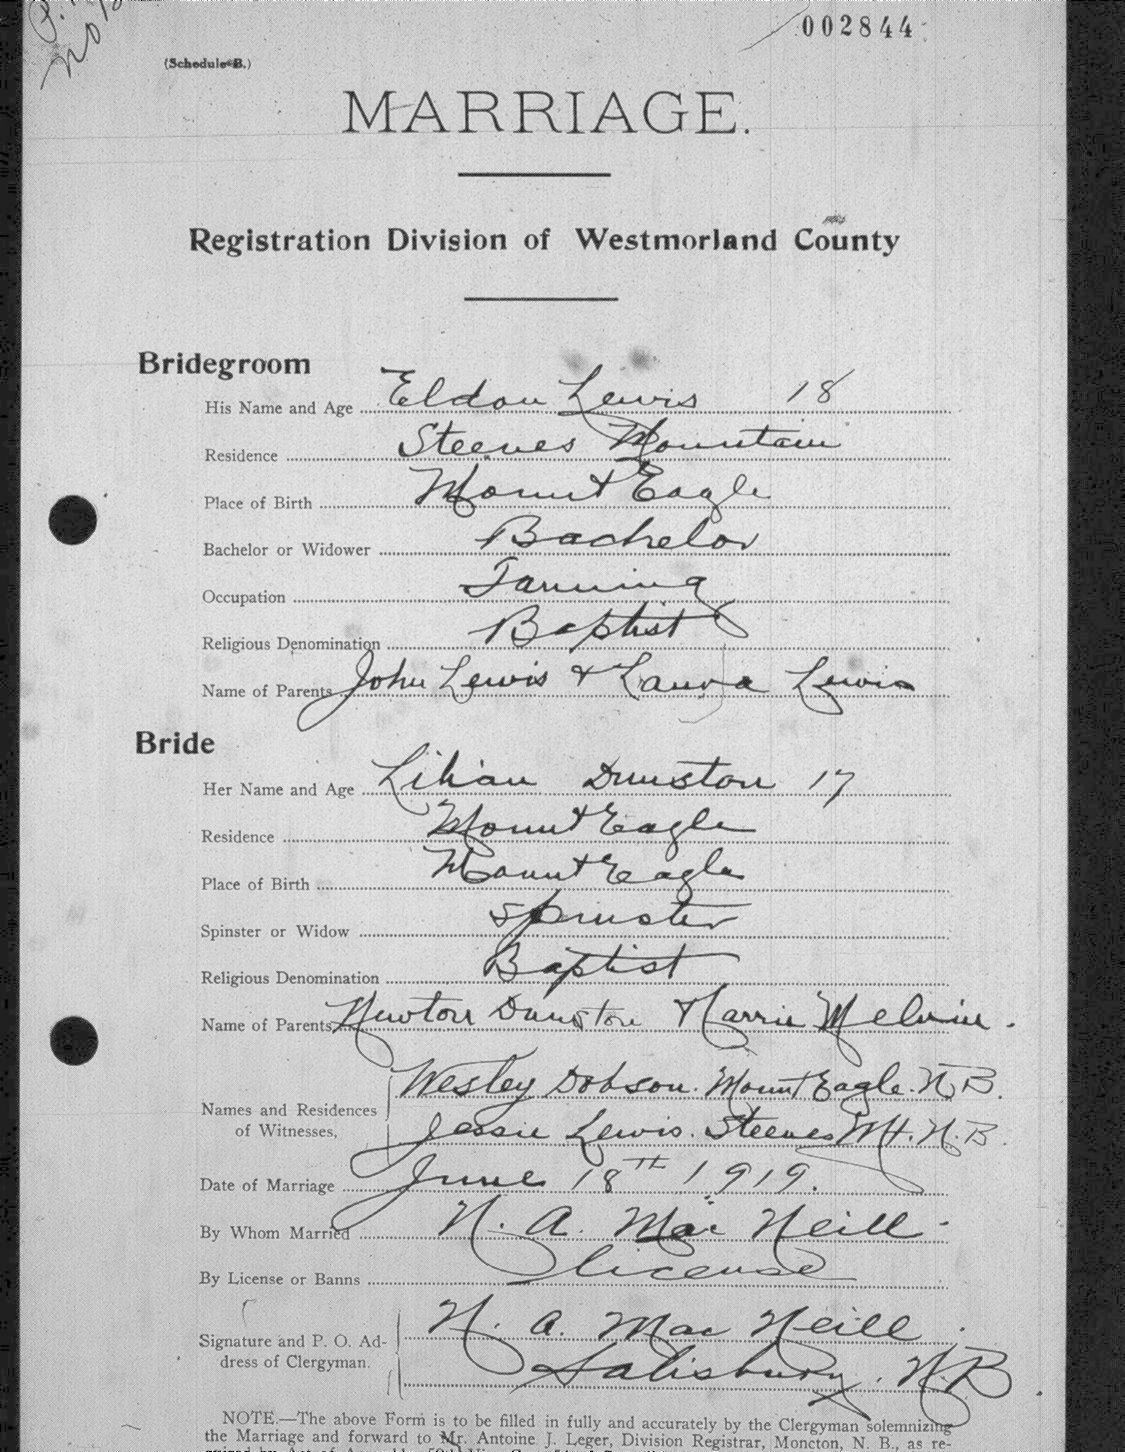 002844
(Schedule B.)
MARRIAGE.
Registration Division of Westmorland County
Bridegroom
His Name and Age Eldon Lewis 18
Residence Steeves Mountain
Place of Birth Mount Eagle
Bachelor or Widower Bachelor
Occupation
Religious Denomination Baptist
Name of Parents John Lewis & Laura Lewis
Bride
Her Name and Age Lilian Dunston 17
Residence Mount Eagle
Place of Birth Mount Eagle
Spinster or Widow Spinster
Religious Denomination Baptist
Name of Parents Newton Dunston Melvin.
Names and Residences of Witnesses, Wesley Dobson. Mount Eagle. N.B.
Jessie Lewis. Steeves Mt. N.B.
Date of Marriage June 18TH 1919.
By Whom Married N. A. Mac Neill
By License or Banns license
Signature and P. O. Ad- N. A. Mac Neill
dress of Clergyman. Salisbury. N.B.
NOTE.—The above Form is to be filled in fully and accurately by the Clergyman solemnizing
the Marriage and forward to Mr. Antoine J. Leger, Division Registrar, Moncton, N. B., as re-